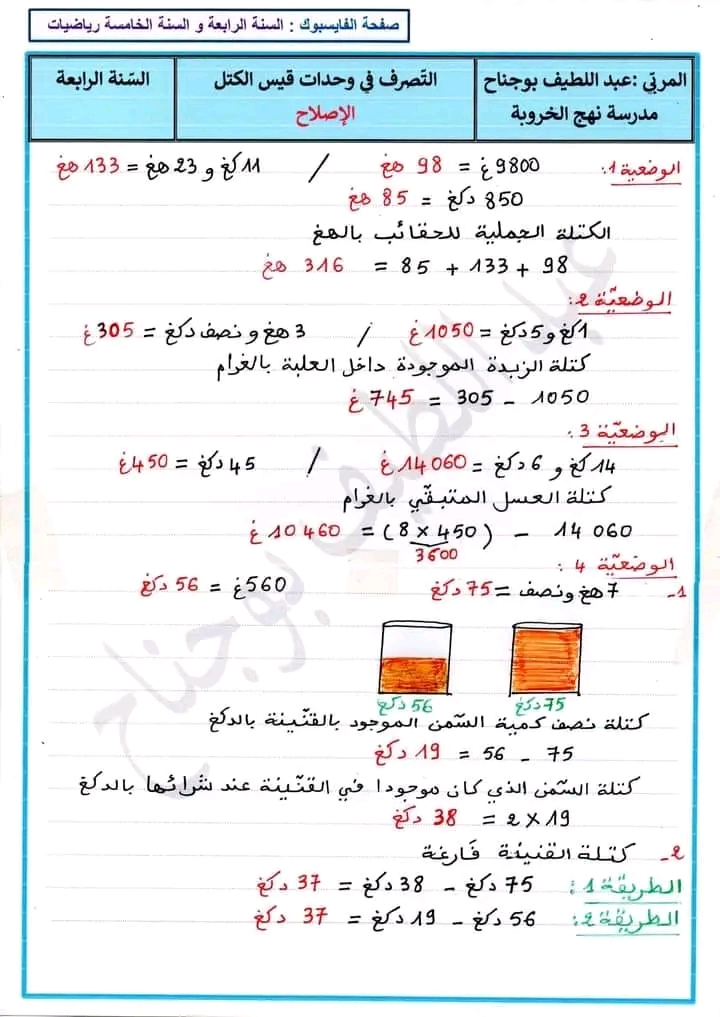 صفحة الفايسبوك : السنة الرابعة و السنة الخامسة رياضيات
المربّي :عبد اللطيف بوجناح
مدرسة نهج الخروبة
التّصرف في وحدات قيس الكتل
الإصلاح
السّنة الرابعة
الوضعية 1: 9800غ = 98 هغ / 11كغ و 23هغ = 133 هغ
850 دكغ = 85 هغ
الكتلة الجملية للحقائب بالهغ
98 + 133 + 85 = 316 هغ
الوضعيّة 2:
1كغ و5دكغ = 1050غ / 3هغ و نصف دكغ = 305غ
كتلة الزبدة الموجودة داخل العلبة بالغرام
1050 - 305 = 745 غ
الوضعيّة 3:
14كغ و 6دكغ = 14060غ / 45دكغ = 450غ
كتلة العسل المتبقّي بالغرام
14 060 - (450 × 8) = 10 460 غ
3600
الوضعيّة 4:
1- 7هغ ونصف = 75دكغ 560غ = 56 دكغ
75دكغ 56دكغ
كتلة نصف كمية السّمن الموجود بالقنّينة بالدكغ
75 - 56 = 19 دكغ
كتلة السّمن الذي كان موجودا في القنّينة عند شرائها بالدكغ
19 × 2 = 38 دكغ
2- كتلة القنينة فارغة
الطريقة 1: 75 دكغ - 38 دكغ = 37 دكغ
الطريقة 2: 56 دكغ - 19 دكغ = 37 دكغ
عبد اللطيف بوجناح